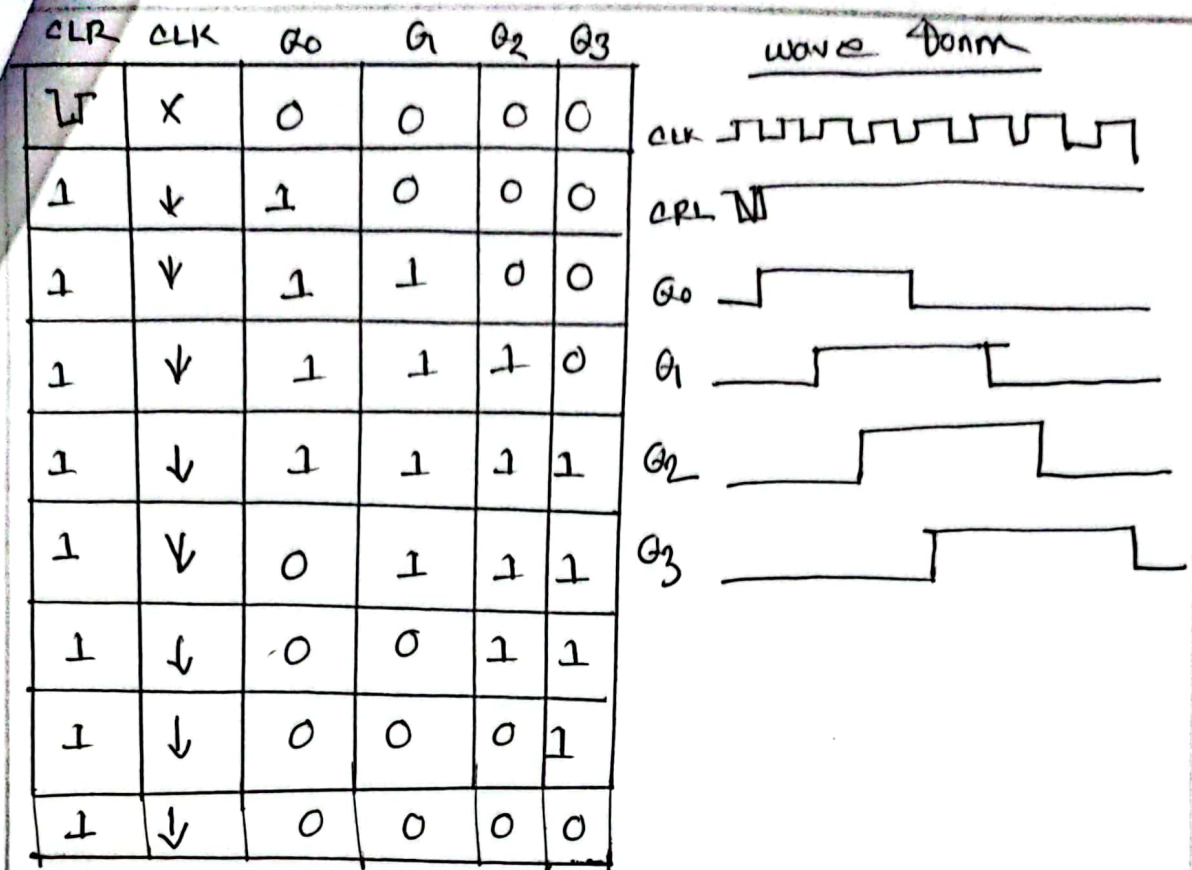 CLR CLK Q0 Q1 Q2 Q3
X 0 0 0 0
1 ↓ 1 0 0 0
1 ↓ 1 1 0 0
1 ↓ 1 1 1 0
1 ↓ 1 1 1 1
1 ↓ 0 1 1 1
1 ↓ 0 0 1 1
1 ↓ 0 0 0 1
1 ↓ 0 0 0 0
wave
CLK
CRL
Q0
Q1
Q2
Q3